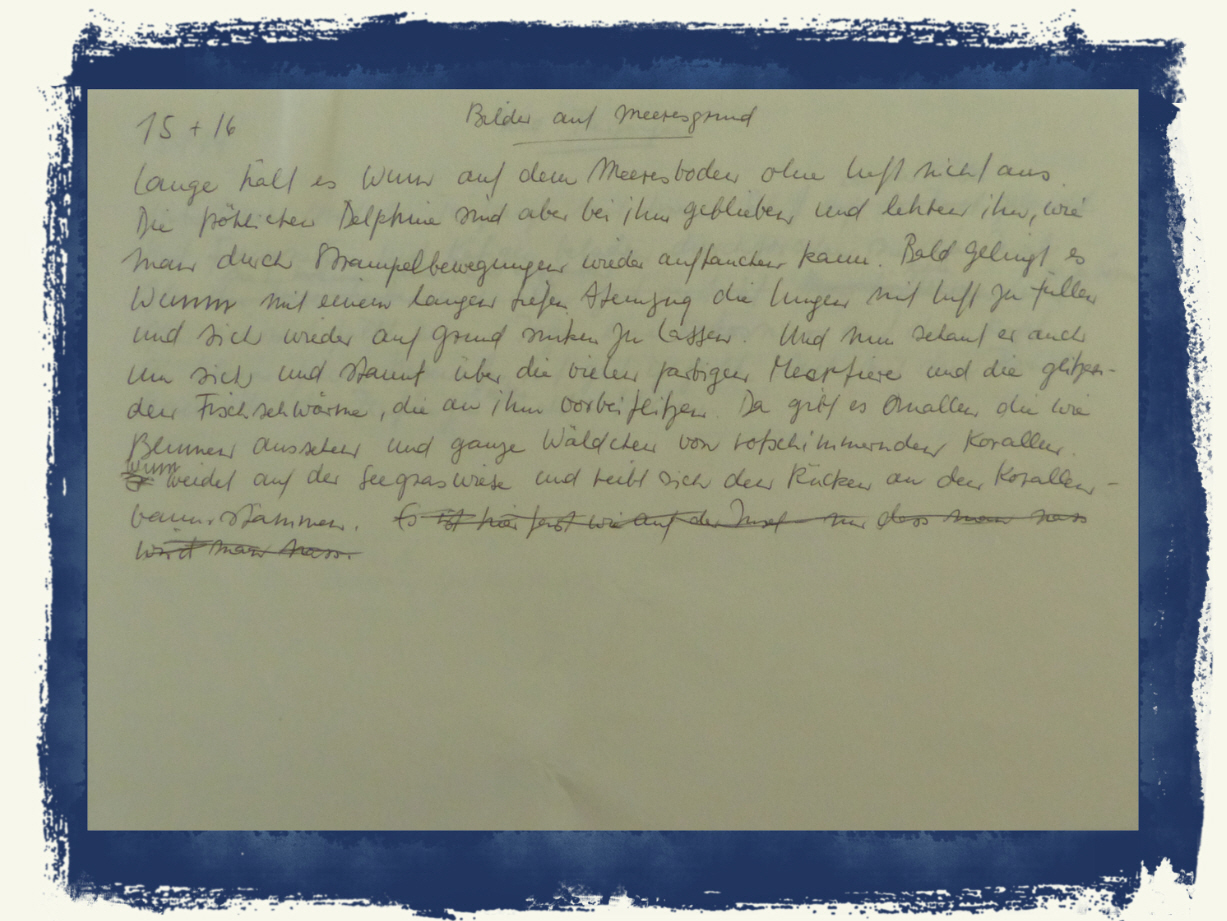 15 + 16
Bilder auf Meeresgrund
Lange hält es Wumm auf dem Meeresboden ohne Luft nicht aus.
Die fröhlichen Delphine sind aber bei ihm geblieben und lehren ihn, wie
man durch Strampelbewegungen wieder auftauchen kann. Bald gelingt es
Wumm mit einem langen tiefen Atemzug die Lungen mit Luft zu füllen
und sich wieder auf Grund sinken zu lassen. Und nun schaut er auch
um sich und staunt über die vielen farbigen Meertiere und die glitzern-
den Fischschwärme, die an ihm vorbeiflitzen. Da gibt es Quallen die wie
Blumen aussehen und ganze Wäldchen von rotschimmernden Korallen.
Wumm weidet auf der Seegraswiese und reibt sich den Rücken an den Korallen-
baumstämmen. Es ist hier fast wie auf der Insel nur dass man nass
wird man nass.